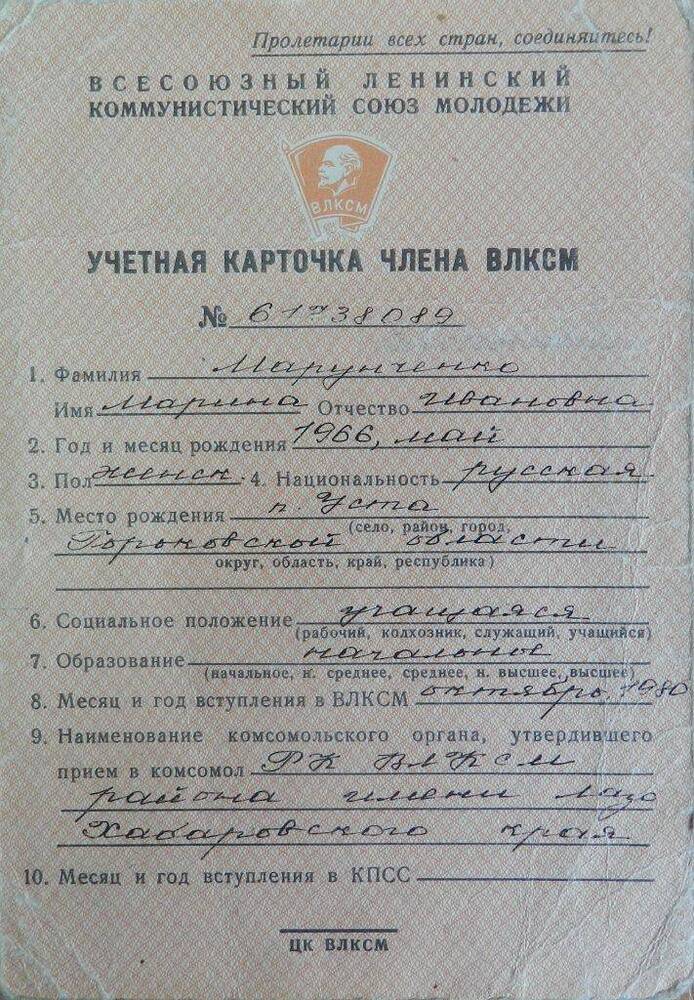 Пролетарии всех стран, соединяйтесь!
ВСЕСОЮЗНЫЙ ЛЕНИНСКИЙ
КОММУНИСТИЧЕСКИЙ СОЮЗ МОЛОДЕЖИ
ВЛКСМ
УЧЕТНАЯ КАРТОЧКА ЧЛЕНА ВЛКСМ
№ 61738089
1. Фамилия Марунченко
Имя Марина Отчество Ивановна
2. Год и месяц рождения 1966, май
3. Пол женск. 4. Национальность русская
5. Место рождения п. Уста
(село, район, город,
Горьковской области
округ, область, край, республика)
6. Социальное положение учащаяся
(рабочий, колхозник, служащий, учащийся)
7. Образование начальное
(начальное, н. среднее, среднее, н. высшее, высшее)
8. Месяц и год вступления в ВЛКСМ октябрь, 1980
9. Наименование комсомольского органа, утвердившего
прием в комсомол РК ВЛКСМ
района имени Лазо
Хабаровского края
10. Месяц и год вступления в КПСС
ЦК ВЛКСМ